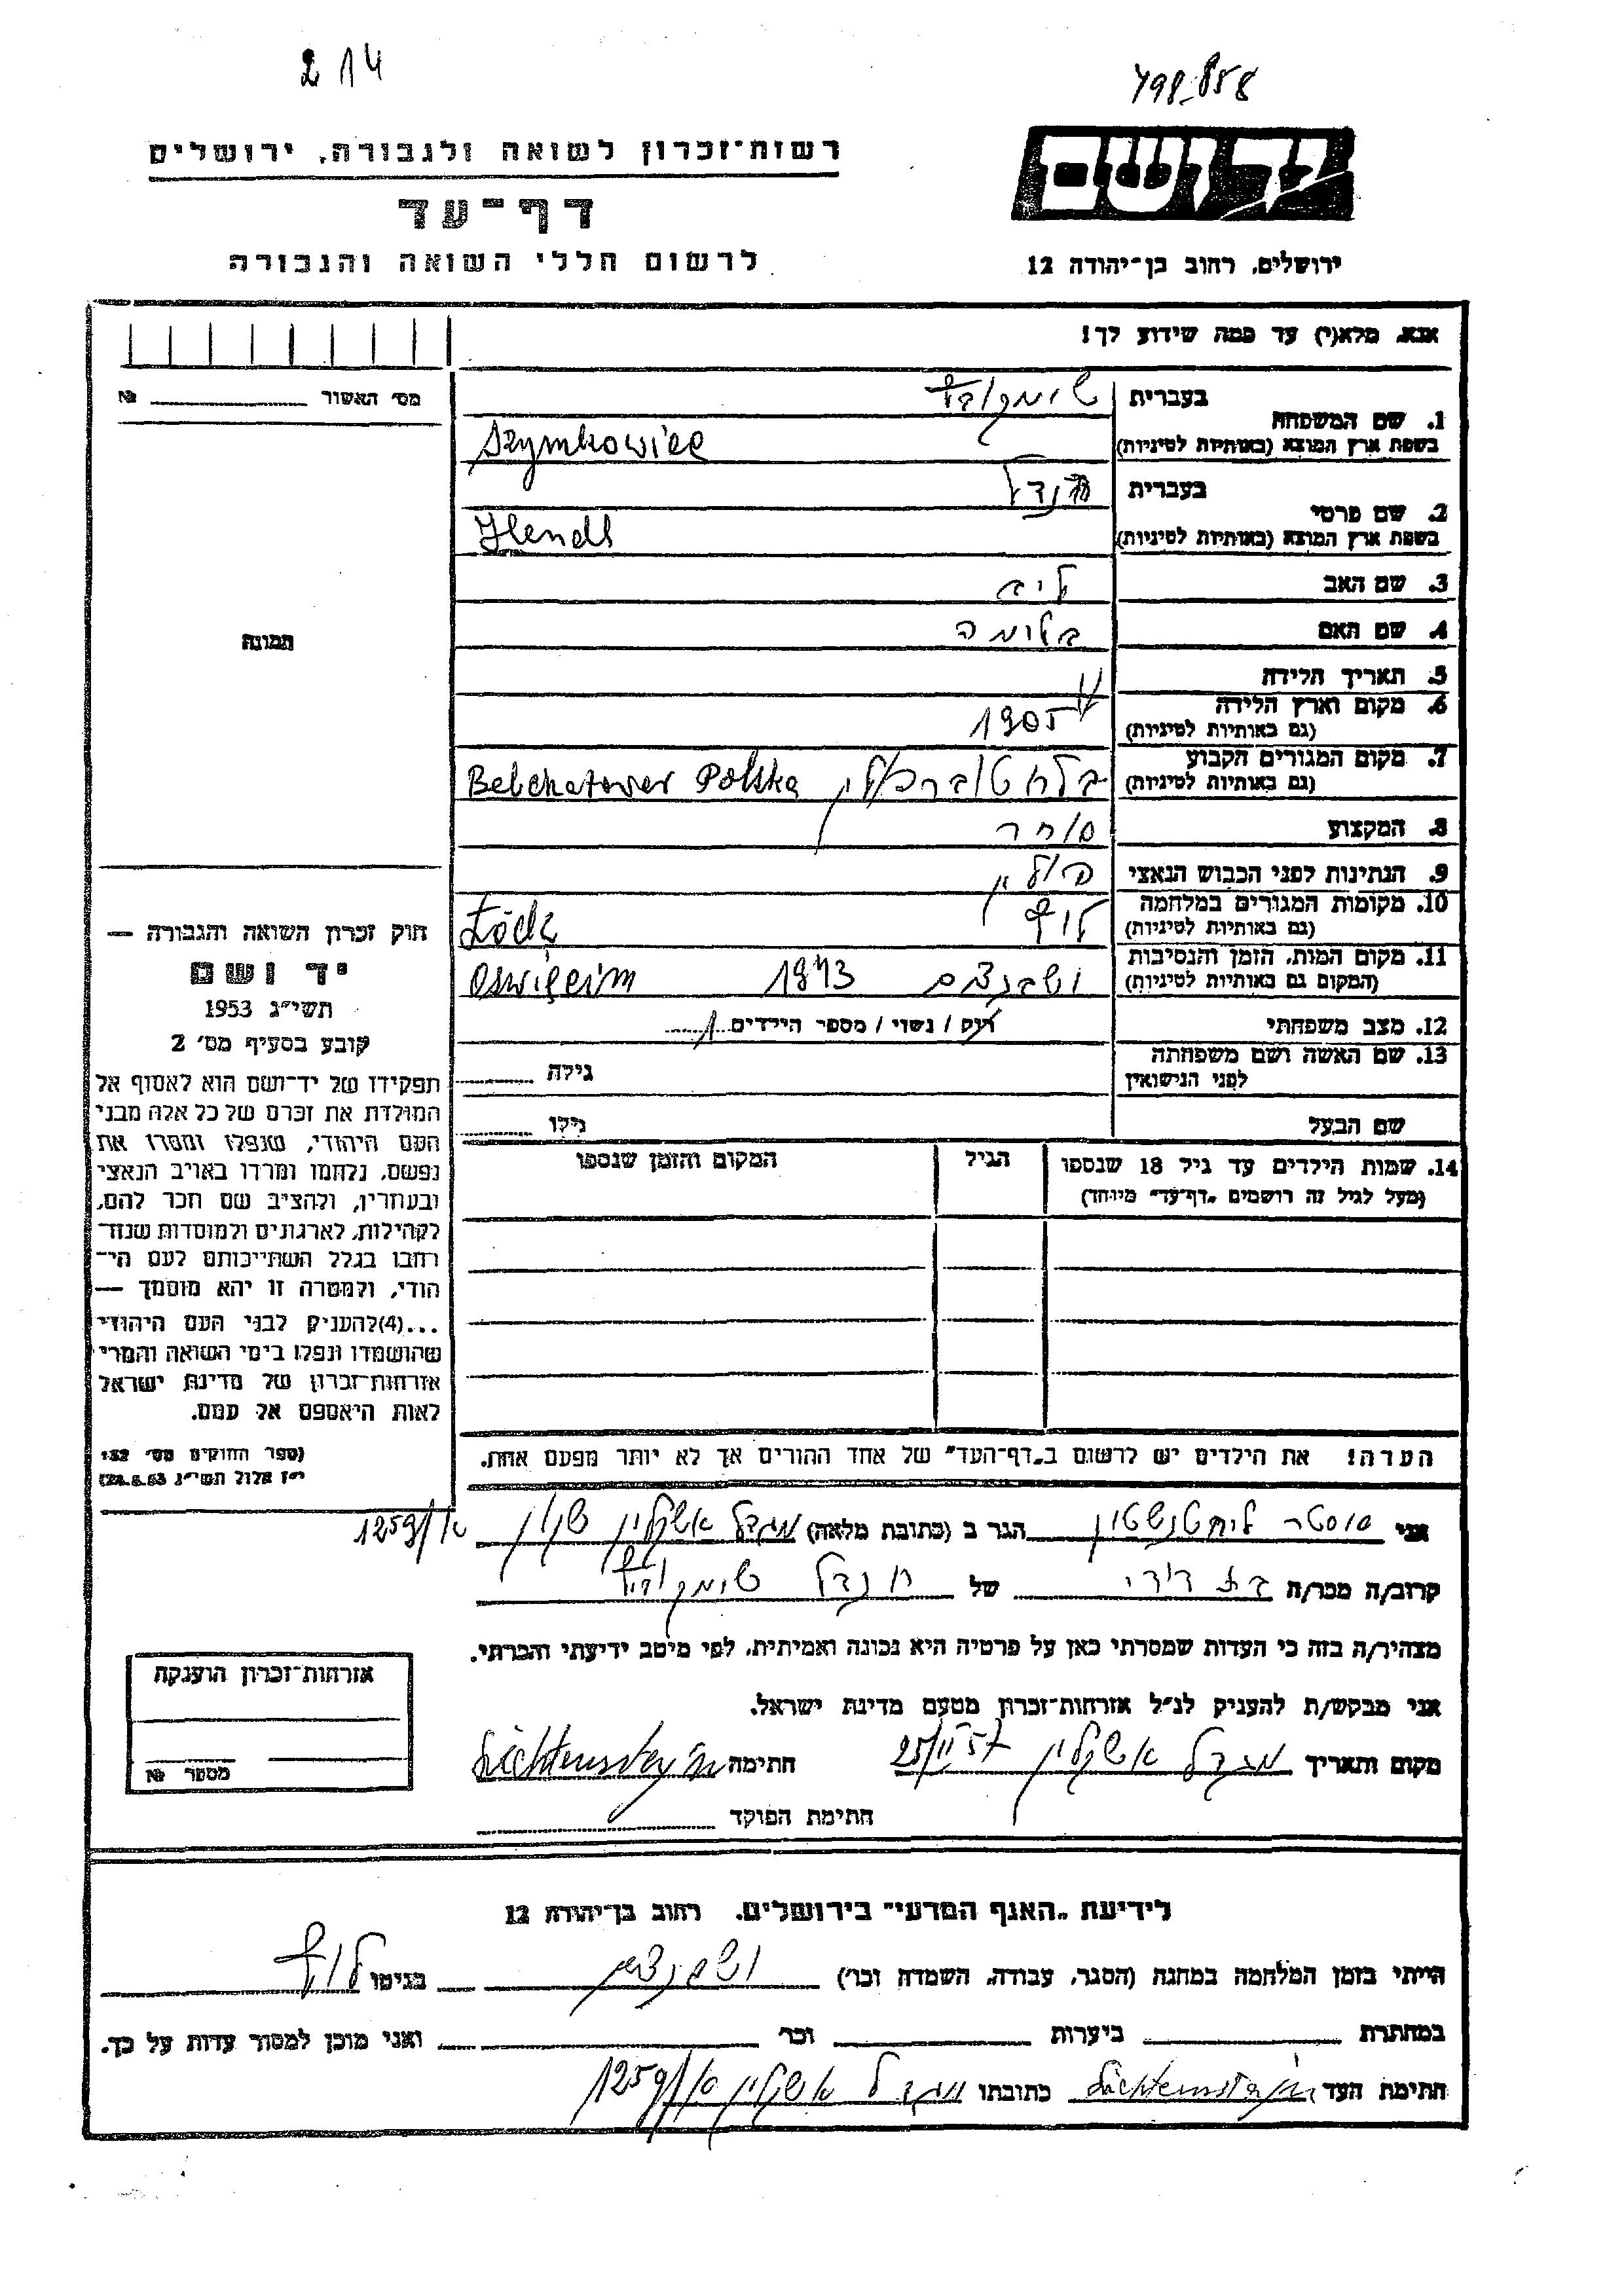 214
798-858
רשות־זכרון לשואה ולגבורה, ירושלים
דף־עד
לרשום חללי השואה והגבורה
יד ושם
ירושלים, רחוב בן־יהודה 12
אנא, מלא(י) עד כמה שידוע לך!
מס׳ האשור № 
1. שם המשפחה
בעברית שימקוביץ
בשפת ארץ המוצא (באותיות לטיניות) Szymkowicz
2. שם פרטי
בעברית הנדל
בשפת ארץ המוצא (באותיות לטיניות) Hendl
3. שם האב ליב
4. שם האם בלומה
5. תאריך הלידה
6. מקום וארץ הלידה 1905
(גם באותיות לטיניות)
7. מקום המגורים הקבוע
(גם באותיות לטיניות) Polska
8. המקצוע סוחר
9. הנתינות לפני הכבוש הנאצי פולין
10. מקומות המגורים במלחמה לודז Łódz
(גם באותיות לטיניות)
11. מקום המות, הזמן והנסיבות
(המקום גם באותיות לטיניות) 1943 Oswięcim
12. מצב משפחתי רוק / נשוי / מספר הילדים 1
13. שם האשה ושם משפחתה
לפני הנישואין גילה
שם הבעל גילו
14. שמות הילדים עד גיל 18 שנספו הגיל המקום והזמן שנספו
(מעל לגיל זה רושמים „דף־עד" מיוחד)
הערה! את הילדים יש לרשום ב„דף־העד" של אחד ההורים אך לא יותר מפעם אחת.
תמונה
חוק זכרון השואה והגבורה —
יד ושם
תשי״ג 1953
קובע בסעיף מס׳ 2
תפקידו של יד־ושם הוא לאסוף אל
המולדת את זכרם של כל אלה מבני
העם היהודי, שנפלו ומסרו את
נפשם, נלחמו ומרדו באויב הנאצי
ובעוזריו, ולהציב שם וזכר להם,
לקהילות, לארגונים ולמוסדות שנח־
רבו בגלל השתייכותם לעם הי־
הודי, ולמטרה זו יהא מוסמך —
...(4)להעניק לבני העם היהודי
שהושמדו ונפלו בימי השואה והמרי
אזרחות־זכרון של מדינת ישראל
לאות היאספם אל עמם.
(ספר החוקים מס׳ 132
י״ז אלול תשי״ג 28.8.53)
אני ליחטנשטין הגר ב (כתובת מלאה) מגדל אשקלון 1259/
קרוב/ה מכר/ה בת דודי של הנדל שימקוביץ
מצהיר/ה בזה כי העדות שמסרתי כאן על פרטיה היא נכונה ואמיתית, לפי מיטב ידיעתי והכרתי.
אני מבקש/ת להעניק לנ״ל אזרחות־זכרון מטעם מדינת ישראל.
מקום ותאריך מגדל אשקלון 25/II 57 חתימה Lichtensztajn
חתימת הפוקד
אזרחות־זכרון הוענקה
מספר №
לידיעת „האגף המדעי" בירושלים, רחוב בן־יהודה 12
הייתי בזמן המלחמה במחנה (הסגר, עבודה, השמדה וכר׳) בגיטו לודז
במחתרת ביערות וכר׳ ואני מוכן למסור עדות על כך.
חתימת העד Lichtensztajn כתובתו מגדל אשקלון 1259/